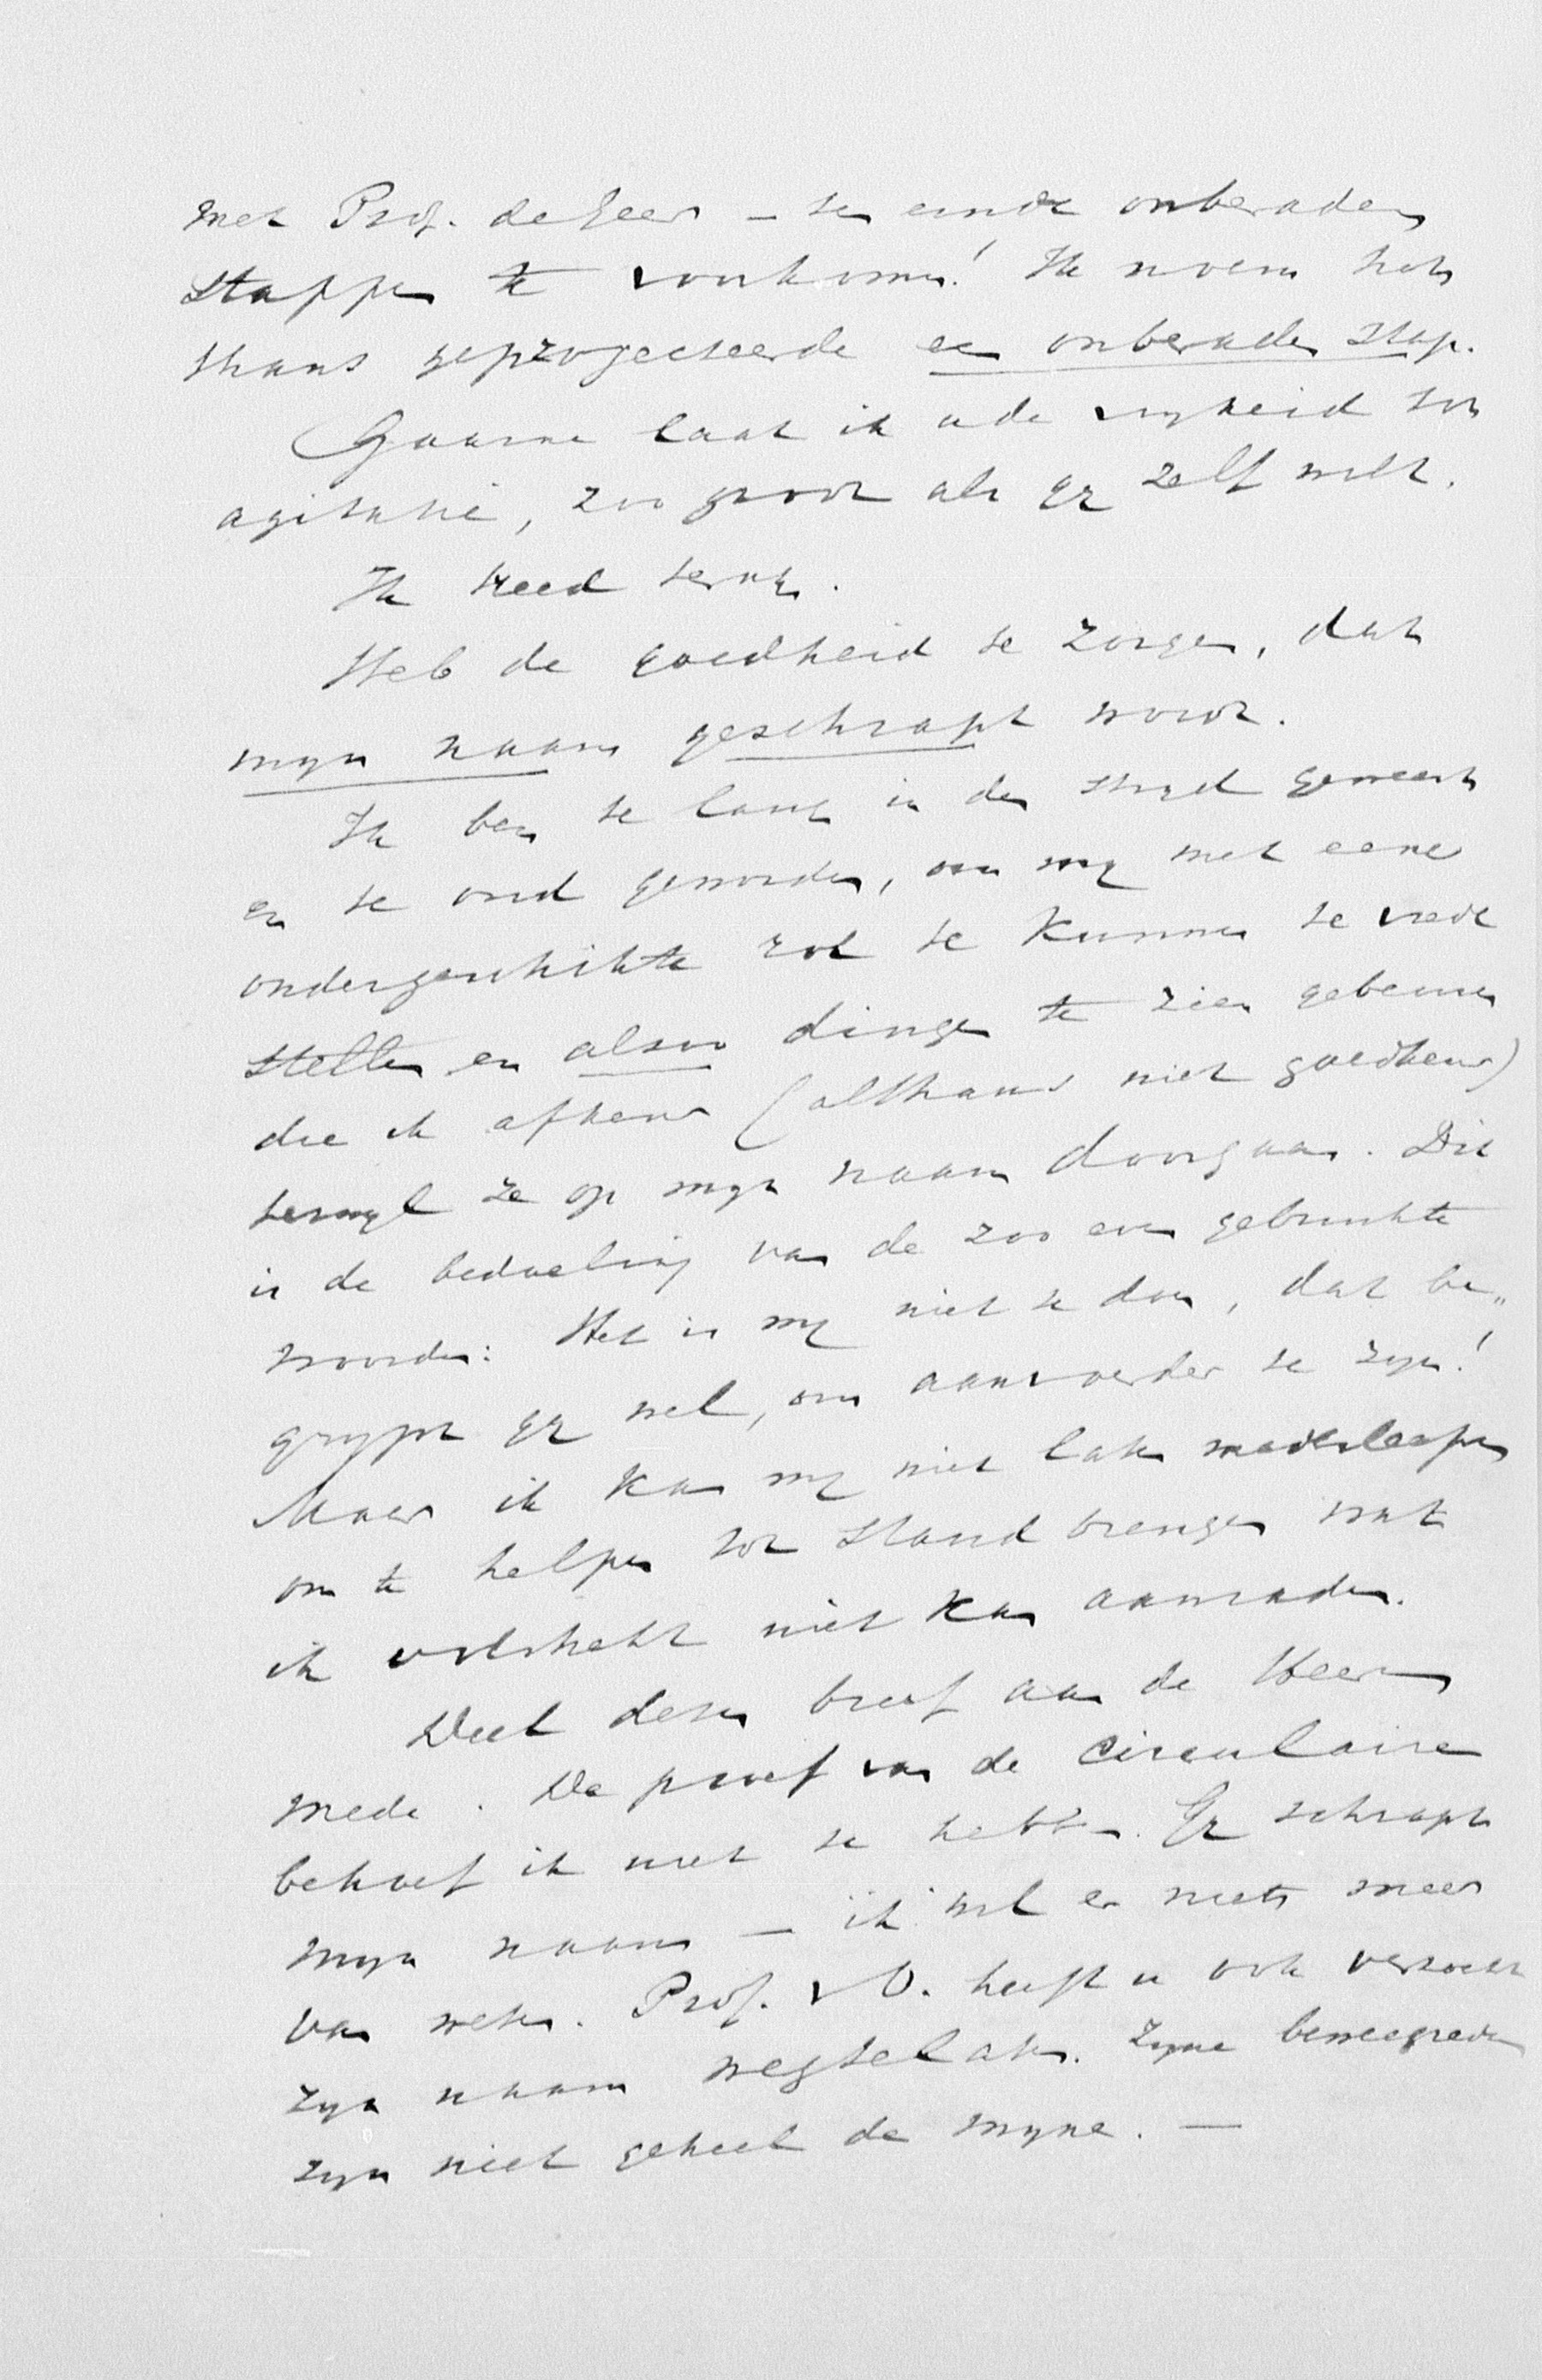 met Prof. de Geer – ten einde onberaden
stappen te voorkomen! Ik noem het
thans geprojecteerde een onberaden stap.
Gaarne laat ik u de vryheid tot
agitatie, zoo groot als gy zelf wilt.
Ik treed terug.
Heb de goedheid te zorgen, dat
myn naam geschrapt wordt.
Ik ben te lang in den stryd geweest
en te oud geworden, om my met eene
ondergeschikte rol te kunnen te vrede
stellen en alzoo dingen te zien gebeuren
die ik afkeur (althans niet goedkeur)
terwyl ze op myn naam doorgaan. Dit
is de bedoeling van de zoo even gebruikte
woorden: Het is my niet te doen, dat be„
grypt gy wel, om aanvoerder te zyn!
Maar ik kan my niet laten medesleepen
om te helpen tot stand brengen wat
ik volstrekt niet kan aanraden.
Deel dezen brief aan de Heeren
mede. De proef van de circulaire
behoef ik niet te hebben. Gy schrapt
myn naam – ik wil er niets meer
van weten. Prof. v O. heeft u ook verzocht
zyn naam wegtelaten. Zyne beweegreden
zyn niet geheel de myne. –